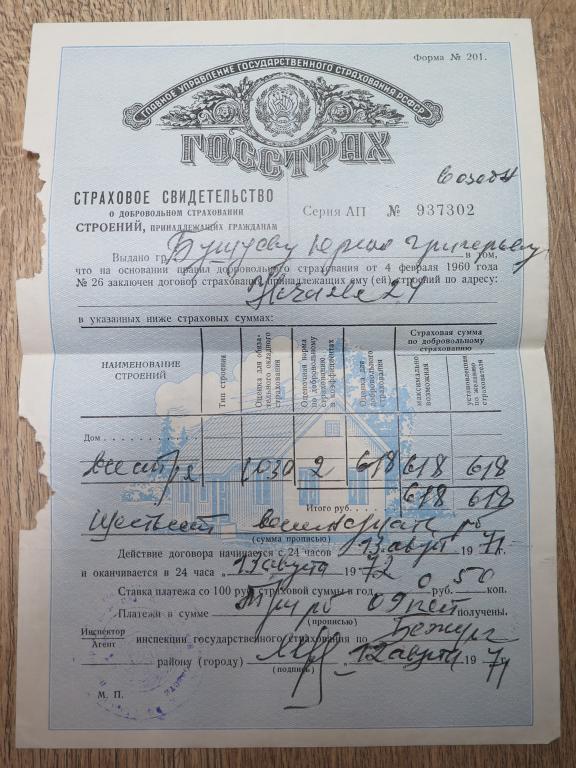 Форма № 201.
ГЛАВНОЕ УПРАВЛЕНИЕ ГОСУДАРСТВЕННОГО СТРАХОВАНИЯ РСФСР
ГОССТРАХ
СТРАХОВОЕ СВИДЕТЕЛЬСТВО
О ДОБРОВОЛЬНОМ СТРАХОВАНИИ
СТРОЕНИЙ, ПРИНАДЛЕЖАЩИХ ГРАЖДАНАМ
Серия АП № 937302
Выдано гр. Юрию Григорьеву в том,
что на основании правил добровольного страхования от 4 февраля 1960 года
№ 26 заключен договор страхования принадлежащих ему (ей) строений по адресу:
24
в указанных ниже страховых суммах:
НАИМЕНОВАНИЕ СТРОЕНИЙ
Тип строения
Оценка для обязательного окладного страхования
Оценочная норма по добровольному страхованию в коэффициентах
Оценка для добровольного страхования
Страховая сумма по добровольному страхованию
максимально возможная
установленная по желанию страхователя
Дом
1030 2 618 618 618
Итого руб. 618 618
Шестьсот восемнадцать рб
(сумма прописью)
Действие договора начинается с 24 часов 13 август 1971 г.
и оканчивается в 24 часа „13 августа 1972
Ставка платежа со 100 руб. страховой суммы в год 0 руб. 50 коп.
Платежи в сумме Три рб 09 коп получены.
(прописью)
Инспектор
Агент
инспекции государственного страхования по
району (городу) „12 августа 1971
(подпись)
М. П.